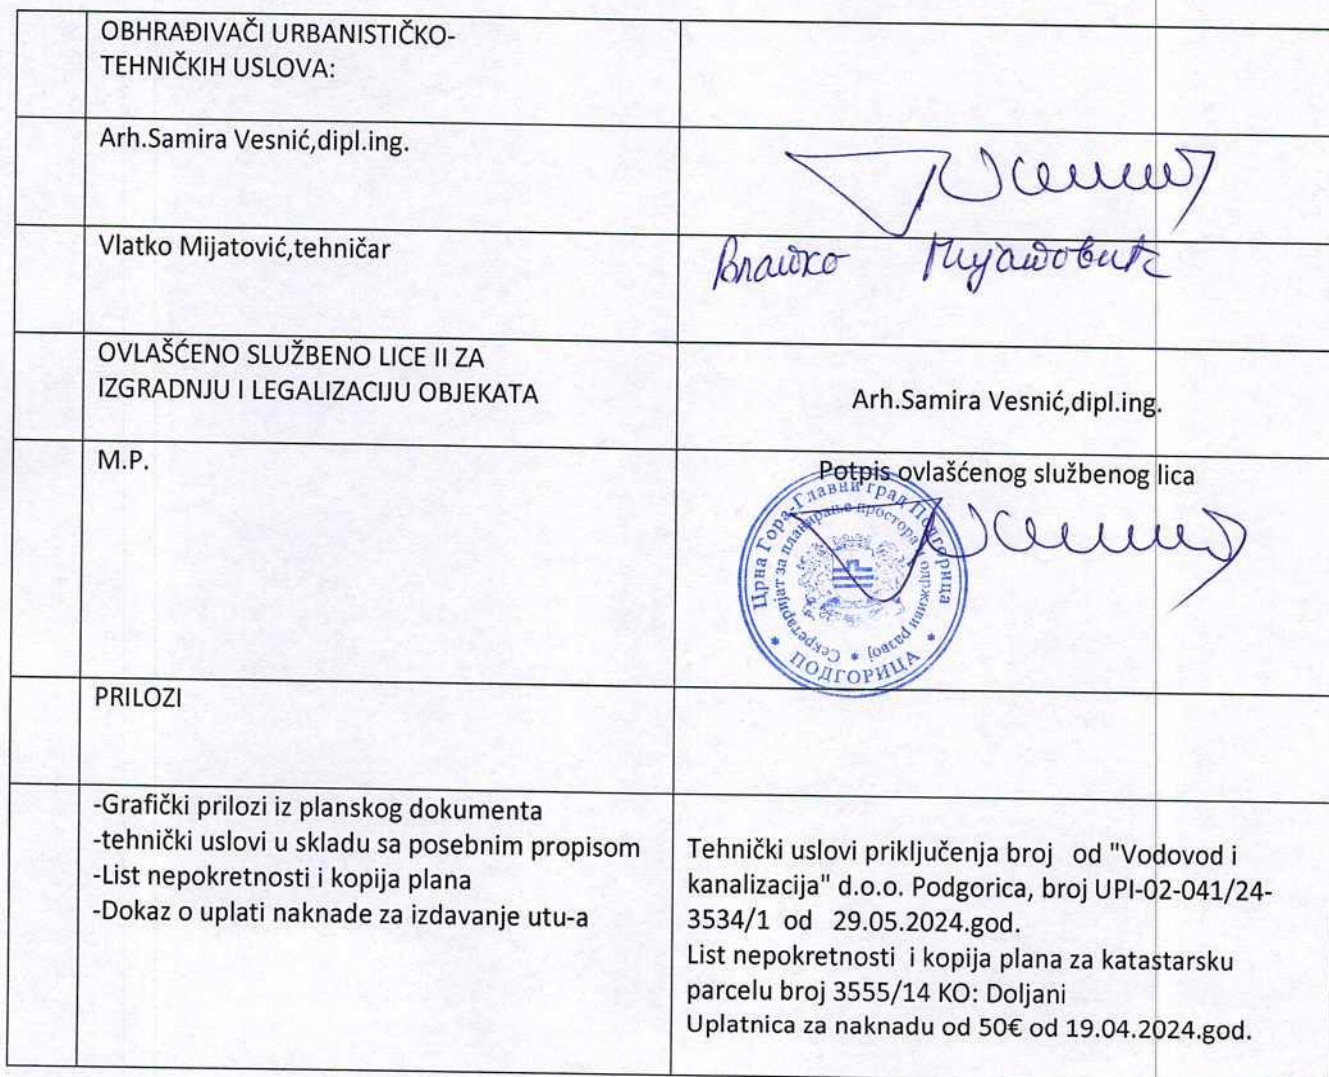 OBHRAĐIVAČI URBANISTIČKO-
TEHNIČKIH USLOVA:
Arh.Samira Vesnić,dipl.ing.
Vlatko Mijatović,tehničar
Влатко Мијатовић
OVLAŠĆENO SLUŽBENO LICE II ZA
IZGRADNJU I LEGALIZACIJU OBJEKATA
Arh.Samira Vesnić,dipl.ing.
M.P.
Potpis ovlašćenog službenog lica
Црна Гора-Главни град Подгорица
Секретаријат за планирање простора и одрживи развој
ПОДГОРИЦА
PRILOZI
-Grafički prilozi iz planskog dokumenta
-tehnički uslovi u skladu sa posebnim propisom
-List nepokretnosti i kopija plana
-Dokaz o uplati naknade za izdavanje utu-a
Tehnički uslovi priključenja broj od "Vodovod i
kanalizacija" d.o.o. Podgorica, broj UPI-02-041/24-
3534/1 od 29.05.2024.god.
List nepokretnosti i kopija plana za katastarsku
parcelu broj 3555/14 KO: Doljani
Uplatnica za naknadu od 50€ od 19.04.2024.god.